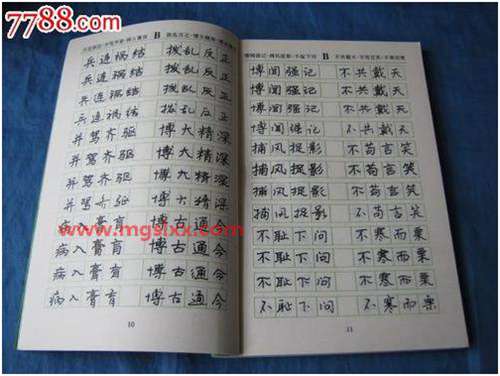 7788.com
兵连祸结·并驾齐驱·病入膏肓 B 拨乱反正·博大精深·博古通今
兵连祸结 拨乱反正
兵连祸结 拨乱反正
兵连祸结 拨乱反正
兵连祸结 拨乱反正
并驾齐驱 博大精深
并驾齐驱 博大精深
并驾齐驱 博大精深
并驾齐驱 博大精深
病入膏肓 博古通今
病入膏肓 博古通今
病入膏肓 博古通今
病入膏肓 博古通今
10
博闻强记·捕风捉影·不耻下问 B 不共戴天·不苟言笑·不寒而栗
博闻强记 不共戴天
博闻强记 不共戴天
博闻强记 不共戴天
博闻强记 不共戴天
捕风捉影 不苟言笑
捕风捉影 不苟言笑
捕风捉影 不苟言笑
捕风捉影 不苟言笑
不耻下问 不寒而栗
不耻下问 不寒而栗
不耻下问 不寒而栗
不耻下问 不寒而栗
11
www.mgslxx.com